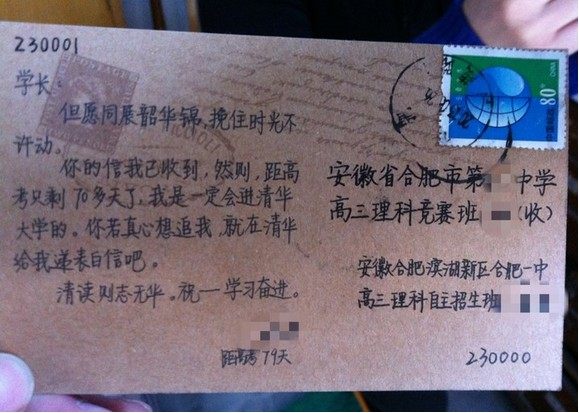 230001
学长:
但愿同展韶华锦,挽住时光不
许动。
你的信我已收到,然则,距高
考只剩70多天了,我是一定会进清华
大学的。你若真心想追我,就在清华
给我递表白信吧。
清读则志无华。祝一学习奋进。
距高考79天
80
CHINA
安徽省合肥市第 中学
高三理科竞赛班 (收)
安徽合肥滨湖新区合肥一中
高三理科自主招生班
230000